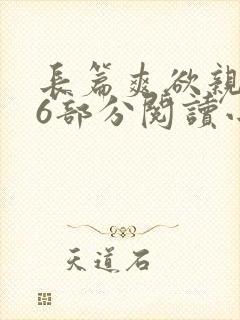 長篇爽欲親
6部分閱讀
天道石